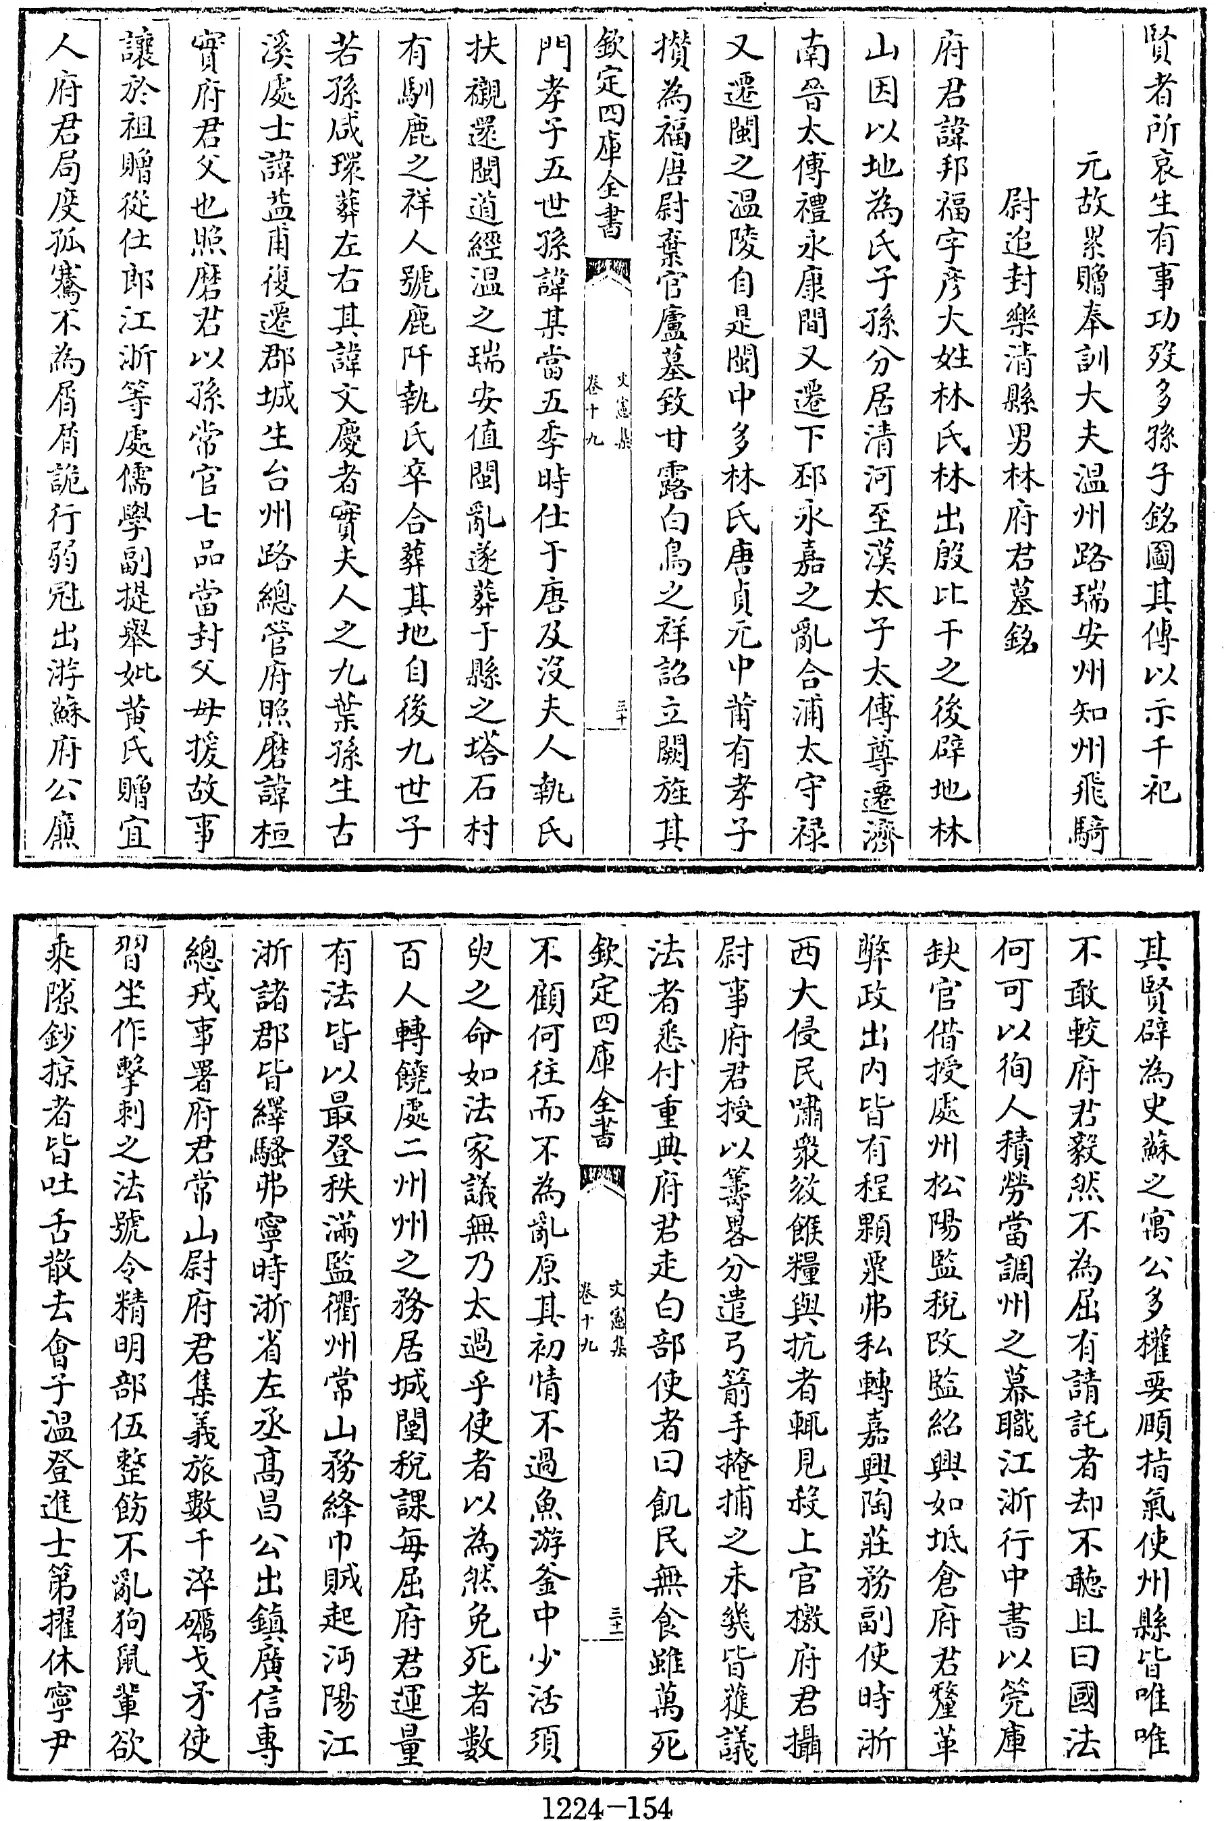 賢者所哀生有事功歿多孫子銘圖其傳以示千祀
元故累贈奉訓大夫温州路瑞安州知州飛騎
尉追封樂清縣男林府君墓銘
府君諱邦福字彦大姓林氏林出殷比干之後辟地林
山因以地為氏子孫分居清河至漢太子太傅尊遷濟
南晉太傅禮永康間又遷下邳永嘉之亂合浦太守禄
又遷閩之温陵自是閩中多林氏唐貞元中莆有孝子
攅為福唐尉棄官廬墓致甘露白烏之祥詔立闕旌其
欽定四庫全書
文憲集
卷十九
三十
門孝子五世孫諱某當五季時仕于唐及沒夫人執氏
扶櫬還閩道經温之瑞安值閩亂遂葬于縣之塔石村
有馴鹿之祥人號鹿阡執氏卒合葬其地自後九世子
若孫咸環葬左右其諱文慶者實夫人之九葉孫生古
溪處士諱益甫復遷郡城生台州路總管府照磨諱桓
實府君父也照磨君以孫常官七品當封父母援故事
讓於祖贈從仕郎江浙等處儒學副提舉妣黄氏贈宜
人府君局度孤騫不為屑屑詭行弱冠出游蘇府公亷
其賢辟為史蘇之寓公多權要頤指氣使州縣皆唯唯
不敢較府君毅然不為屈有請託者却不聽且曰國法
何可以徇人積勞當調州之幕職江浙行中書以筦庫
缺官借授處州松陽監稅改監紹興如坻倉府君釐革
弊政出内皆有程顆粟弗私轉嘉興陶莊務副使時浙
西大侵民嘯衆敓餱糧與抗者輒見殺上官檄府君攝
尉事府君授以籌畧分遣弓箭手掩捕之未幾皆獲議
法者悉付重典府君走白部使者曰飢民無食雖萬死
欽定四庫全書
文憲集
卷十九
三十一
不顧何往而不為亂原其初情不過魚游釜中少活須
臾之命如法家議無乃太過乎使者以為然免死者數
百人轉饒處二州州之務居城闉稅課每屈府君運量
有法皆以最登秩滿監衢州常山務絳巾賊起沔陽江
浙諸郡皆繹騷弗寧時浙省左丞高昌公出鎮廣信專
總戎事署府君常山尉府君集義旅數千淬礪戈矛使
習坐作擊刺之法號令精明部伍整飭不亂狗鼠輩欲
乘隙鈔掠者皆吐舌散去會子温登進士第擢休寧尹
1224-154